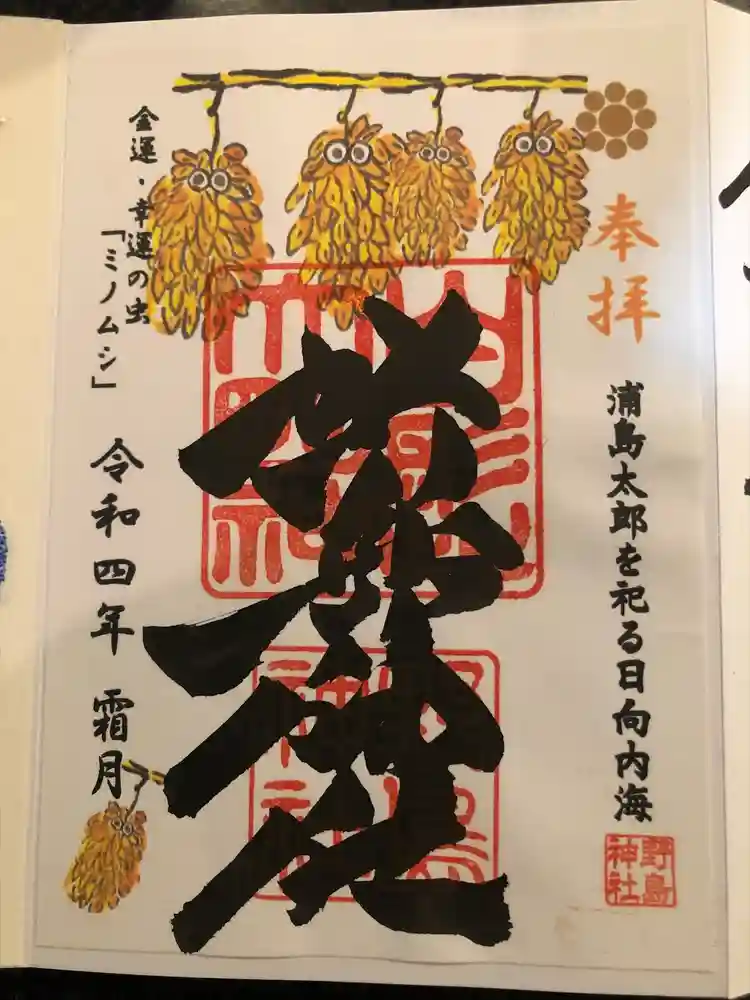 奉拝
浦島太郎を祀る日向内海
野島
神社
野島神社
金運・幸運の虫
「ミノムシ」
令和四年 霜月